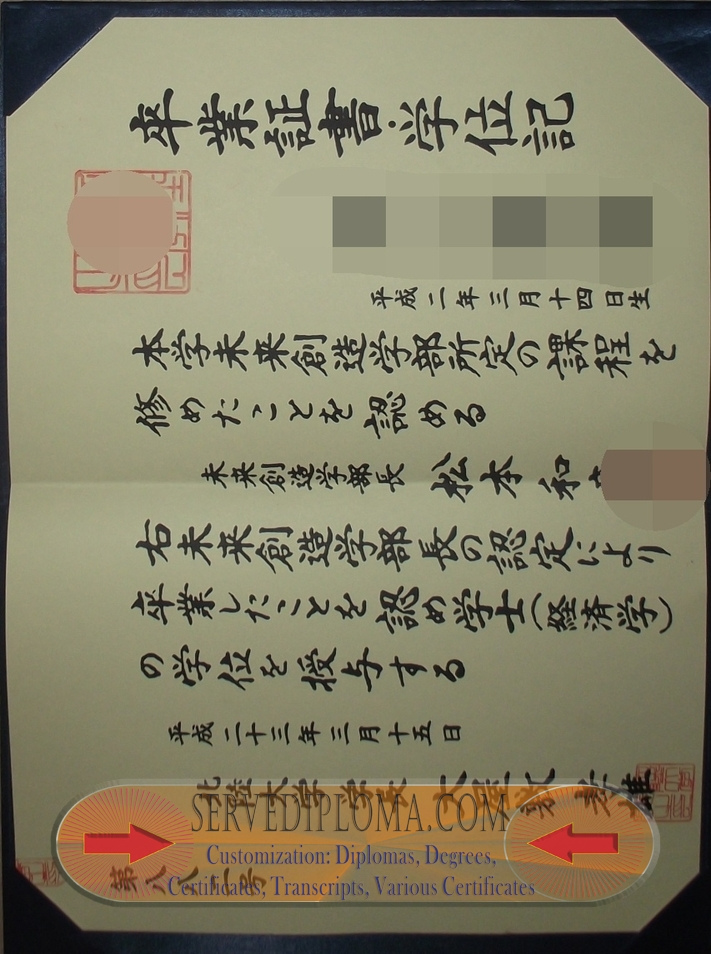 卒業証書・学位記
平成二年三月十四日生
本学未来創造学部所定の課程を
修めたことを認める
未来創造学部長 松本 和
右未来創造学部長の認定により
卒業したことを認め学士(経済学)
の学位を授与する
平成二十三年三月十五日
北陸大学 学長
第八八 号
SERVEDIPLOMA.COM
Customization: Diplomas, Degrees,
Certificates, Transcripts, Various Certificates